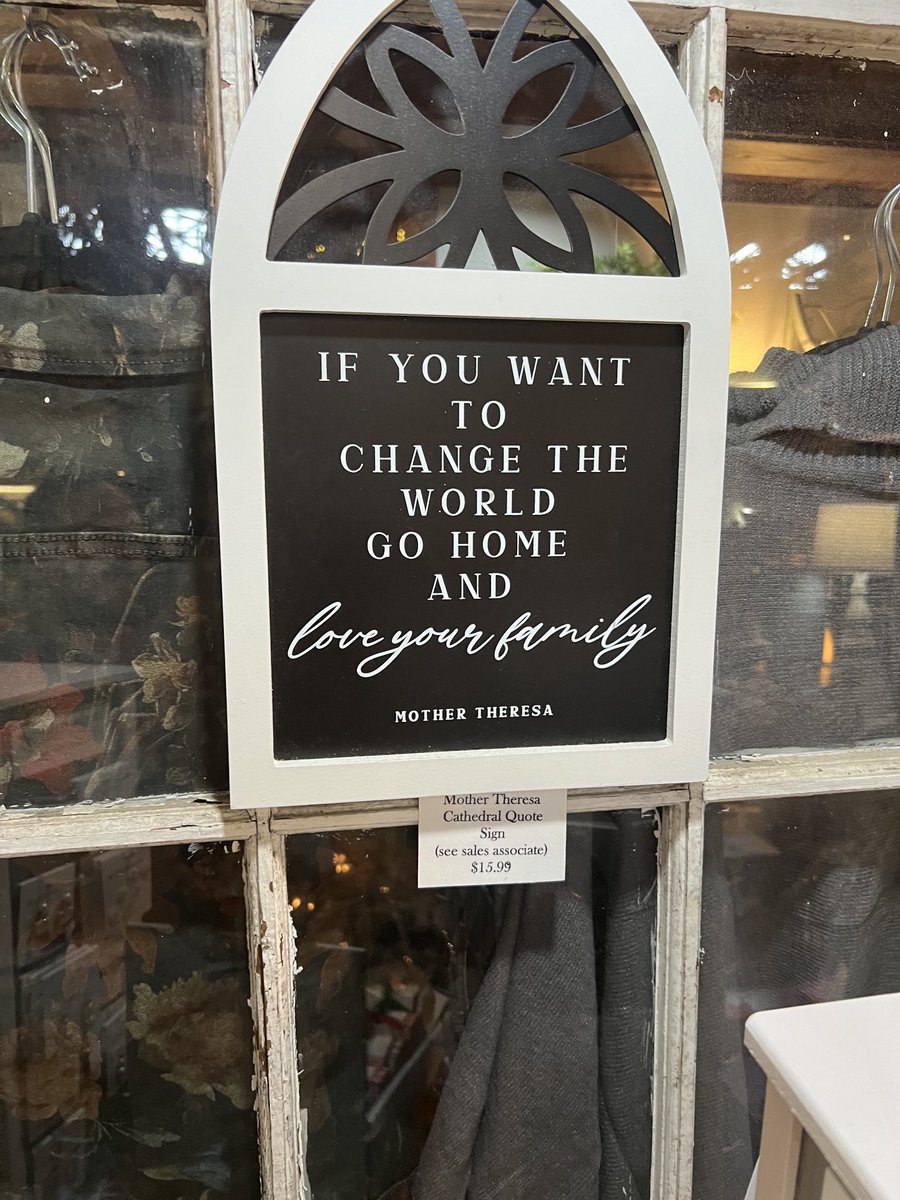 IF YOU WANT
TO
CHANGE THE
WORLD
GO HOME
AND
love your family
MOTHER THERESA
Mother Theresa
Cathedral Quote
Sign
(see sales associate)
$15.99